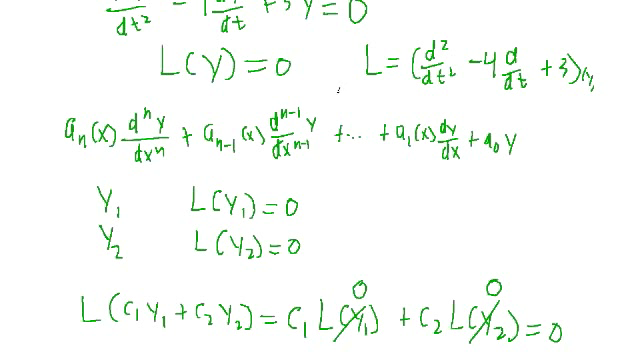 d²y/dt² - 4 dy/dt + 3y = 0
L(y) = 0    L = (d²/dt² - 4 d/dt + 3)(y)
aₙ(x) dⁿy/dxⁿ + aₙ₋₁(x) dⁿ⁻¹y/dxⁿ⁻¹ + ... + a₁(x) dy/dx + a₀y
y₁    L(y₁) = 0
y₂    L(y₂) = 0
0    0
L(c₁y₁ + c₂y₂) = c₁L(y₁) + c₂L(y₂) = 0